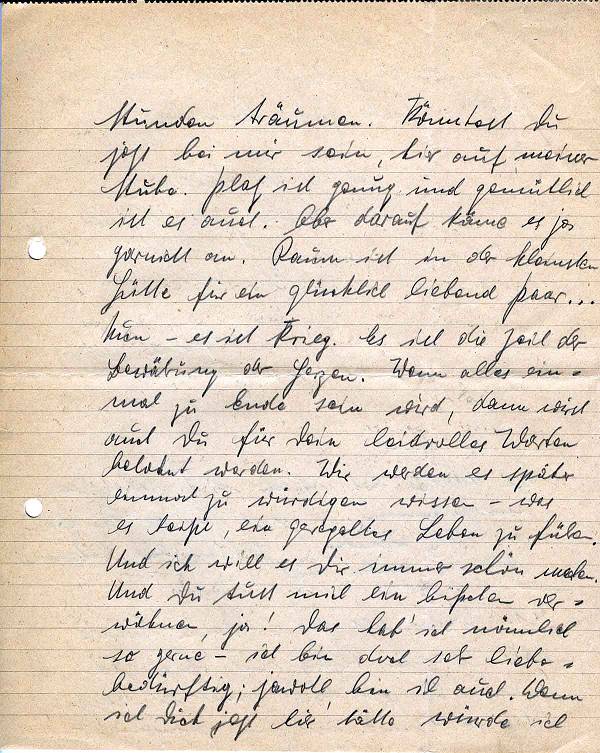 Stunden träumen. Könntest Du
jetzt bei mir sein, hier auf meiner
Stube. Platz ist genug und gemütlich
ist es auch. Aber darauf käme es ja
garnicht an. Raum ist in der kleinsten
Hütte für ein glücklich liebend Paar...
Nun – es ist Krieg. Es ist die Zeit der
Bewährung der Herzen. Wenn alles ein=
mal zu Ende sein wird, dann wirst
auch Du für Dein leidvolles Warten
belohnt werden. Wir werden es später
einmal zu würdigen wissen – was
es heißt, ein geregeltes Leben zu führen.
Und ich will es Dir immer schön machen.
Und Du tust mich ein bißchen ver=
wöhnen, ja! Das hab' ich nämlich
so gerne – ich bin doch sehr liebe=
bedürftig; jawoll bin ich auch. Wenn
ich Dich jetzt hier hätte würde ich